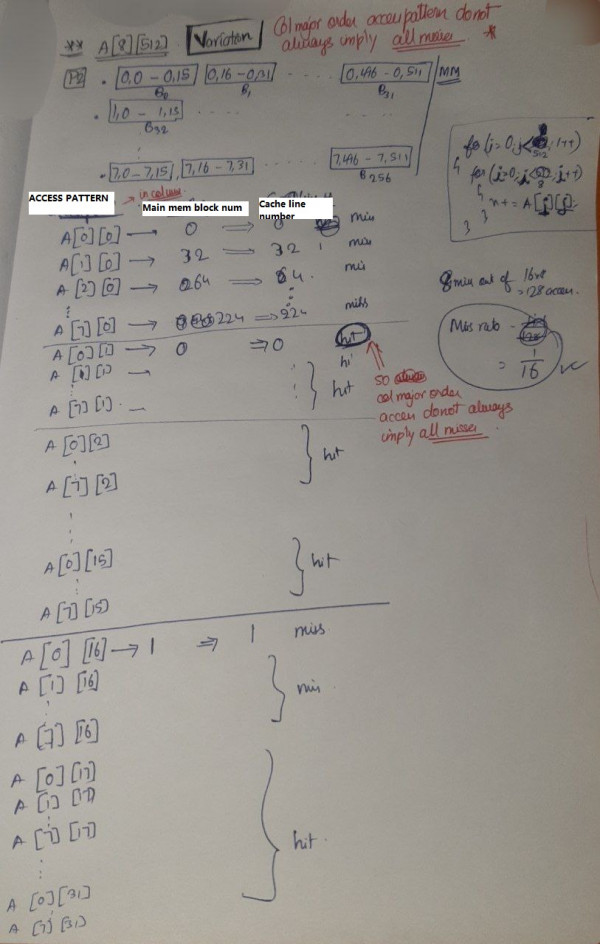 ** A[8][512] Variation Col major order access pattern do not
always imply all misses *
P2 • 0,0 – 0,15 0,16 – 0,31 ...... 0,496 – 0,511 MM
B0 B1 B31
• 1,0 – 1,15 .. ....
B32
• 7,0 – 7,15, 7,16 – 7,31 ... 7,496 – 7,511
B256
for (i=0; j< 512; i++)
{ for (i=0; j< 8; j++)
{ x+ = A[j][i];
}
}
ACCESS PATTERN → in column Main mem block num Cache line number
A[0][0] → 0 ⇒ 0 miss
A[1][0] → 32 ⇒ 32 miss
A[2][0] → 264 ⇒ 64 mis
⋮
A[7][0] → 224 ⇒ 224 miss
A[0][1] → 0 ⇒ 0 hit
A[1][1] → hi
⋮ } hit
A[7][1] →
8 miss out of 16x8
= 128 access.
Miss ratio =
= 1/16
so
col major order
access do not always
imply all misses.
A[0][2]
⋮ } hit
A[7][2]
⋮
A[0][15]
⋮ } hit
A[7][15]
A[0][16] → 1 ⇒ 1 miss
A[1][16]
⋮ } mis
A[7][16]
A[0][17]
A[1][17]
A[7][17]
⋮ } hit
A[0][31]
A[7][31]